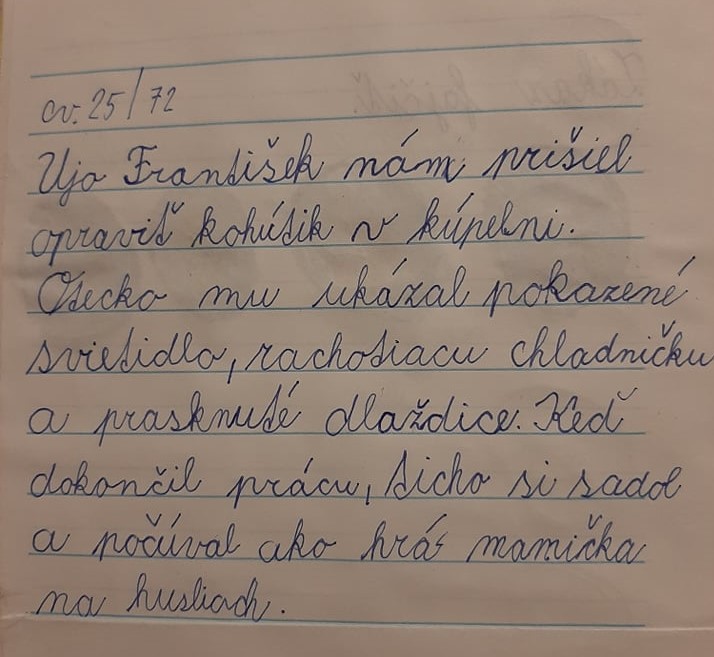 cv. 25/72
Ujo František nám prišiel
opraviť kohútik v kúpelni.
Otecko mu ukázal pokazené
svietidlo, rachotiacu chladničku
a prasknuté dlaždice. Keď
dokončil prácu, ticho si sadol
a počúval ako hrá mamička
na husliach.